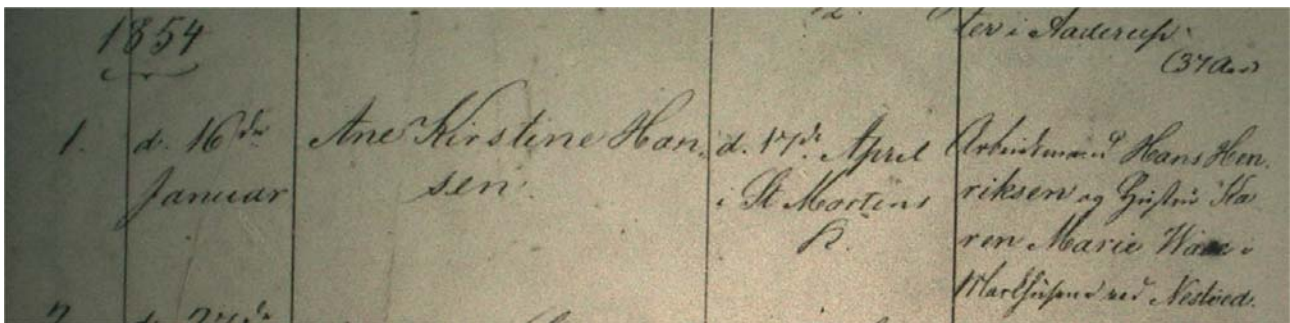 1854
ter i Aaderup.
(37 Aar)
1. d. 16de Januar
Ane Kirstine Han-
sen.
d. 17de April
i St Mortens
K.
Arbeidsmand Hans Hen-
riksen og Hustru Ka-
ren Marie i
Markhusene ved Nestved.
d. 27de